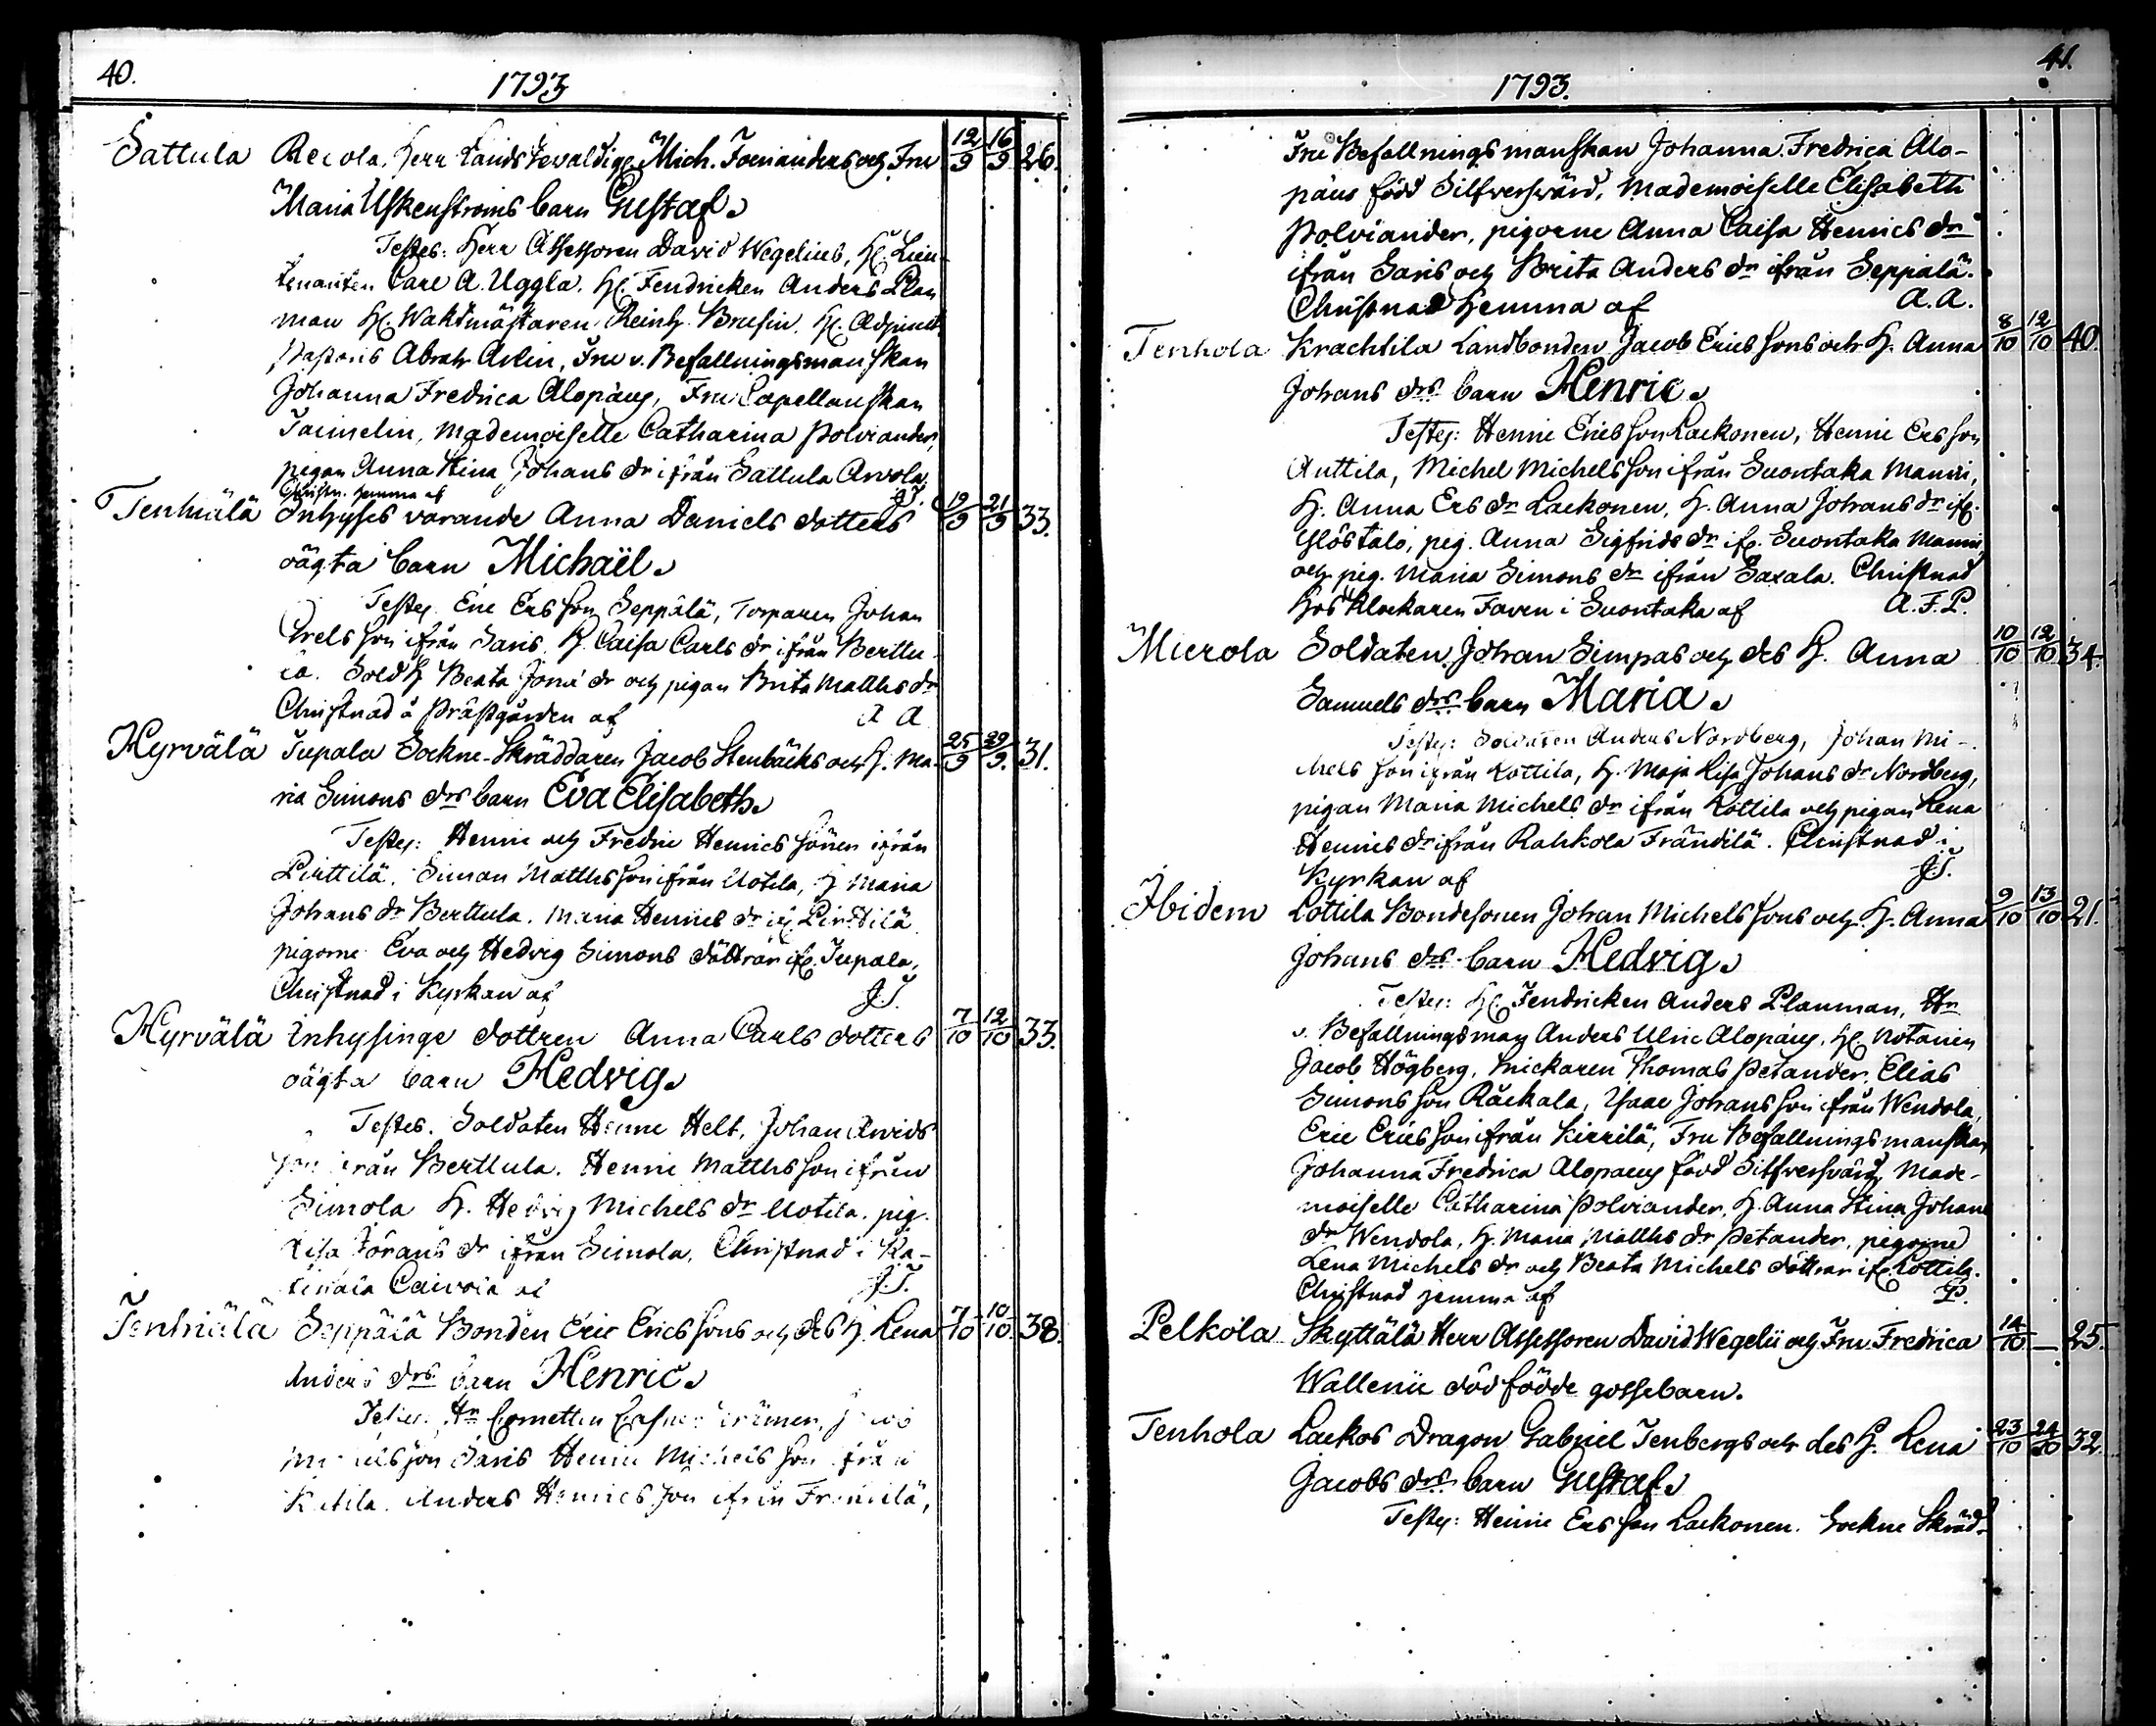 40.
1793
Sattula Recola, Herr Landsfevaldige Mich. Fornanders och Fru 12/9 16/9 26.
Maria Uskenströms barn Gustaf.
Testes: Herr Assessoren David Wegelius, H. Lieu-
tenanten Carl A. Uggla. H. Fendricken Anders Plan
man H. Waktmästaren Reinh. Brusin. H. Adjunct
Pastoris Abrah. Avlin, Fru v. Befallningsmanskan
Johanna Fredrica Alopäus, Fru Capellanskan
Taimelin, Mademoiselle Catharina Polviander,
pigan Anna Stina Johans dr ifrån Sattula Arvola.
Christn. hemma af J.T.
Tenhiälä Inhyses varande Anna Daniels dotters 19/9 21/9 33.
oägta barn Michaël.
Testes. Eric Ers son Seppälä, Torparen Johan
Axels son ifrån Saris. H. Caisa Carls dr ifrån Berttu-
la. Sold H. Beata Jona dr och pigan Brita Matths dr
Christnad å Prästgården af A A
Hyrvälä Jupala Sockne-Skräddaren Jacob Stenbäcks och H. Ma- 25/9 29/9. 31.
ria Simons drs barn Eva Elisabeth.
Testes: Henric och Fredric Henrics söner ifrån
Pirttilä. Simon Matths son ifrån Uotila, H. Maria
Johans dr Berttula. Maria Henrics dr if. Pirttilä
pigorne Eva och Hedvig Simons döttrar if. Jupala,
Christnad i Kyrkan af J.T.
Hyrvälä Inhysinge dottren Anna Carls dotters 7/10 12/10 33.
oägta barn Hedvig.
Testes. Soldaten Henric Helt, Johan Arvids
son ifrån Berttula. Henric Matths son ifrån
Simola H. Hedvig Michels dr Uotila. pig.
Lisa Jörans dr ifrån Simola. Christnad i Ka-
Caivola af J.T.
Tenhiälä Seppälä Bonden Eric Erics sons och des H. Lena 7/10 10/10 38.
Anders drs barn Henric.
Testes: Hr Cornetten
son Saris Henric Michels son ifrån
Kotila. Anders Henrics son ifrån
41.
1793.
Fru Befallningsmanskan Johanna Fredrica Alo-
päus född Silfversvärd, Mademoiselle Elisabeth
Polviander, pigorne Anna Caisa Henrics dr
ifrån Saris och Brita Anders dr ifrån Seppälä.
Christnad hemma af A.A.
Tenhola Krachtila Landbonden Jacob Erics sons och H. Anna 8/10 12/10 40.
Johans drs barn Henric.
Testes: Henric Erics son Laekonen, Henric Ers son
Anttila, Michel Michels son ifrån Suontaka Manni,
H. Anna Ers dr Laekonen, H. Anna Johans dr if.
Ylöstalo, pig. Anna Sigfrids dr if. Suontaka Manni,
och pig. Maria Simons dr ifrån Saxala. Christnad
hos Klockaren Faven i Suontaka af A.F.P.
Mierola Soldaten Johan Simpas och des H. Anna 10/10 12/10 34.
Samuels drs barn Maria.
Testes: Soldaten Anders Nordberg, Johan Mi-
chels son ifrån Lottila, H. Maja Lisa Johans dr Nordberg,
pigan Maria Michels dr ifrån Lottila och pigan Lena
Henrics dr ifrån Rahkola Frändilä. Christnad i
Kyrkan af J.T.
Ibidem Lottila Bondesonen Johan Michels sons och H. Anna 9/10 13/10 21.
Johans drs barn Hedvig.
Testes: H. Fendricken Anders Planman, Hr
v. Befallningsman Anders Ulric Alopäus, H. Notarien
Jacob Högberg, Snickaren Thomas Petander, Elias
Simons son Räckala, Isaac Johans son ifrån Wendola,
Eric Erics son ifrån Kirrilä, Fru Befallningsmanskan
Johanna Fredrica Alopæus född Silfversvärd, Made-
moiselle Catharina Polviander, H. Anna Stina Johans
dr Wendola, H. Maria Matths dr Petander, pigorne
Lena Michels dr och Beata Michels döttrar if. Lottila.
Christnad hemma af P.
Pelkola Skyttälä Herr Assessoren David Wegelii och Fru Fredrica 14/10 — 25.
Wallenii död födde gossebarn.
Tenhola Laekos Dragon Gabriel Tenbergs och des H. Lena 23/10 24/10 32.
Jacobs drs barn Gustaf.
Testes: Henric Ers son Laekonen. Sockne Skräd-